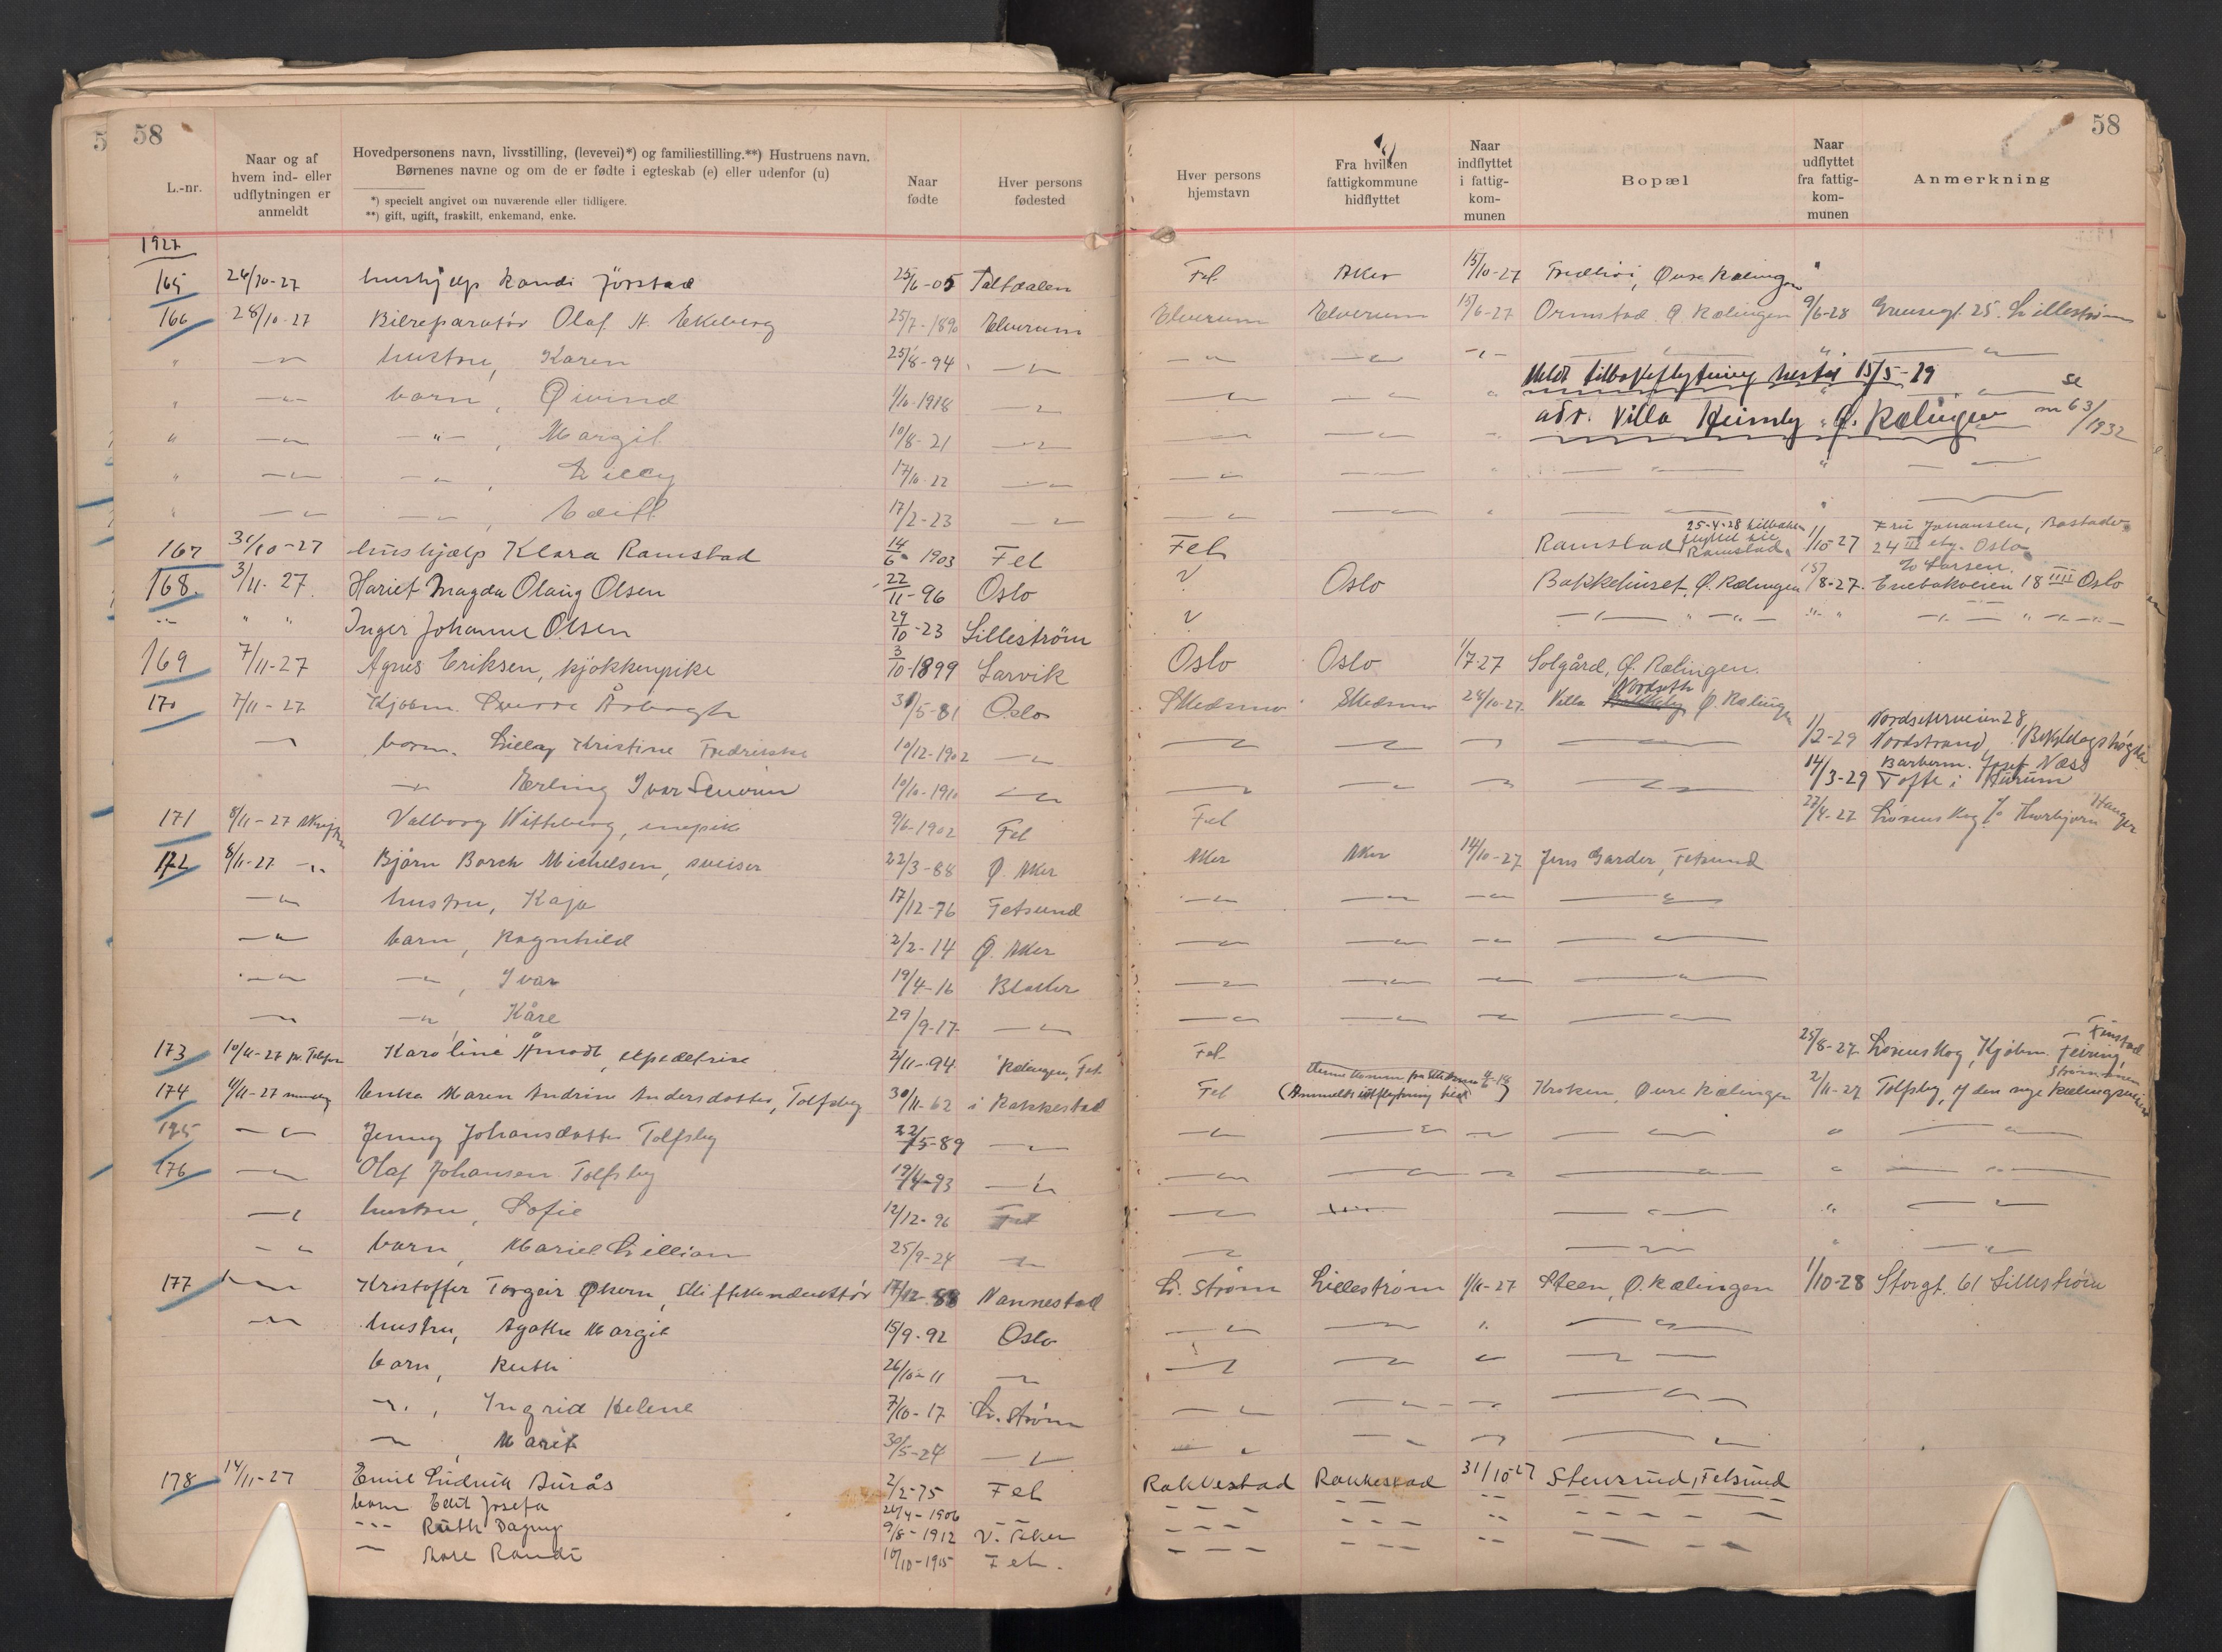 58
58
L.-nr. Naar og af hvem ind- eller udflytningen er anmeldt Hovedpersonens navn, livsstilling, (levevei)*) og familiestilling.**) Hustruens navn. Børnenes navne og om de er fødte i egteskab (e) eller udenfor (u) Naar fødte Hver persons fødested Hver persons hjemstavn Fra hvilken fattigkommune hidflyttet Naar indflyttet i fattigkommunen Bopæl Naar udflyttet fra fattigkommunen Anmerkning
*) specielt angivet om nuværende eller tidligere.
**) gift, ugift, fraskilt, enkemand, enke.
1927
165 26/10-27 hushjelp Randi Jörstad 25/6-05 Fet Aker 15/10-27 Øvre Rælingen
166 28/10-27 Bilreparatør Olaf A. Ekeberg 25/7-1890 Elverum Elverum Elverum 15/6-27 Ormstad Ø Rælingen 9/6-28 25. Lillestrøm
" —"— hustru, Karen 25/8-94 —"— —"— —"— —"—
Meldt tilbakeflytning hertil 15/5-29
" —"— barn, Øivind 1/10-1918 —"— —"— —"— " se
adr. Villa Heimly Ø. Rælingen nr 63/1932
" —"— —"—, Margit 10/8-21 —"— —"— —"—
" —"— —"—, Lilly 17/10-22 —"— —"— —"—
" —"— —"—, 17/2-23 —"— —"— —"—
167 31/10-27 hushjælp Klara Ramstad 14/6-1903 Fet Fet Ramstad 25-4-28 tilbake flyttet til Ramstad 1/10-27 Fru Johansen, 24 III etg. Oslo
168 3/11-27 Hariet Magda Olaug Olsen 22/11-96 Oslo ? Oslo Bakkehuset, Ø. Rælingen 15/8-27 Larsen. Enebakveien 18 IIII Oslo
-"- " " Inger Johanne Olsen 29/10-23 Lilleström ? —"— " —"— " —"—
169 7/11-27 Agnes Eriksen, kjøkkenpike 3/10-1899 Larvik Oslo Oslo 1/7-27 Solgård, Ø. Rælingen.
170 7/11-27 Kjøbm. 31/5-81 Oslo Skedsmo Skedsmo 28/10-27 Villa Nordseth Ø. Rælingen
—"— barn. Lilly Kristine Fredrikke 10/12-1902 —"— —"— —"— —"— —"— 1/2-29 Nordseterveien 28, Nordstrand, Bekkelagshøgda
—"— Erling Ivar 10/10-1910 —"— —"— —"— —"— —"— 14/3-29 Barberm. Josef Næss Tofte i Hurum
171 8/11-27 Valborg Witteberg, 9/6-1902 Fet Fet 27/4-27 Lørenskog
172 8/11-27 —"— Bjørn Borch Michelsen, sveiser 22/3-88 Ø. Aker Aker Aker 14/10-27 Jens Garder, Fetsund
—"— hustru, Kaja 17/12-76 Fetsund —"— —"— —"— —"—
—"— barn, Ragnhild 2/2-14 Ø. Aker —"— —"— —"— —"—
—"— —"—, Ivar 19/4-16 Blaker —"— —"— —"— —"—
—"— —"— Kåre 29/9-17 —"— —"— —"— —"— —"—
173 10/11-27 pr. Telefon Karoline Åmodt, 2/11-94 Rælingen, Fet Fet 25/8-27 Lørenskog, Kjøbm. Feiring,
174 11/11-27 Enke Maren Andrine Andersdotter, Tolfsby 30/11-62 i Rakkestad Fet Kroken, Øvre Rælingen 2/11-27 Tolfsby, den nye Rælingsveien
175 —"— Jenny Johansdotter Tolfsby 22/5-89 —"— —"— —"— —"— —"— " —"—
176 —"— Olaf Johansen Tolfsby 19/4-93 —"— —"— —"— —"— —"— " —"—
—"— hustru, Sofie 12/12-96 Fet —"— —"— " —"—
—"— barn, Lillian 25/9-24 —"— —"— —"— " —"—
177 —"— Kristoffer Torgeir Økern, 17/12-88 Nannestad L. Strøm Lillestrøm 1/11-27 Steen, Ø. Rælingen 1/10-28 Storgt. 61 Lillestrøm
—"— hustru, Agathe Margit 15/9-92 Oslo —"— —"— " —"—
barn, Ruth 26/10-11 —"— —"— —"— —"— —"—
—"—, Ingrid Helene 7/10-17 L. strøm —"— —"— —"— —"—
—"— Marit 30/5-24 —"— —"— —"— —"— —"—
178 14/11-27 Emil Ludvik Aurås 2/2-75 Fet Rakkestad Rakkestad 31/10-27 Stensrud, Fetsund
barn Edit Josefa 26/4-1906 — — — — — — -- — — — —
--- Ruth Dagny 9/8-1912 V. Aker — — — — — — -- — — — —
— Randi 10/10-1915 Fet. — — — — — — -- — — —